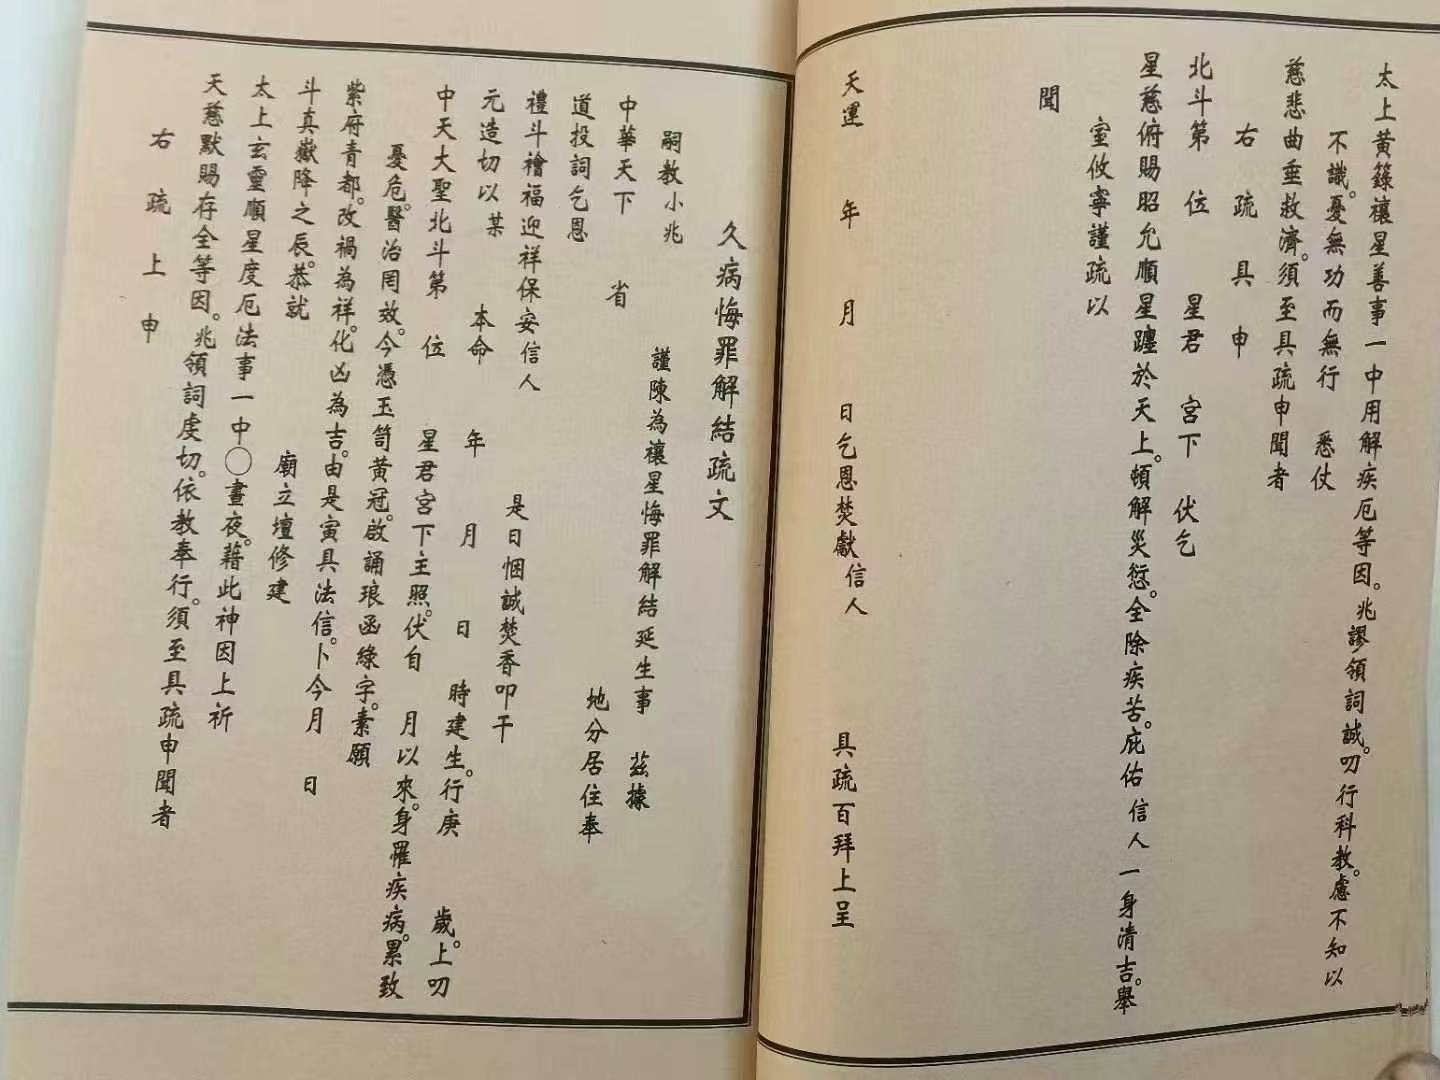 太上黃籙禳星善事一中用解疾厄等因。兆謬領詞誠。叨行科教。慮不知以
不識。憂無功而無行　悉仗
慈悲曲垂救濟。須至具疏申聞者
右　疏　具　申
北斗第　位　星君　宮下　伏乞
星慈俯賜昭允順星躔於天上。頓解災愆。全除疾苦。庇佑信人一身清吉。舉
室攸寧謹疏以
聞
天運　年　月　日乞恩焚獻信人　具疏百拜上呈
久病悔罪解結疏文
嗣教小兆　謹陳為禳星悔罪解結延生事　茲據
中華天下　省　地分居住奉
道投詞乞恩
禮斗禬福迎祥保安信人　是日悃誠焚香叩干
元造切以某　本命　年　月　日　時建生。行庚　歲。上叨
中天大聖北斗第　位　星君宮下主照。伏自　月以來。身罹疾病。累致
憂危。醫治罔效。今憑玉笥黃冠。啟誦琅函綠字。素願
紫府青都。改禍為祥。化凶為吉。由是寅具法信。卜今月　日
斗真嶽降之辰。恭就　廟立壇修建
太上玄靈順星度厄法事一中〇晝夜。藉此神因上祈
天慈默賜存全等因。兆領詞虔切。依教奉行。須至具疏申聞者
右　疏　上　申